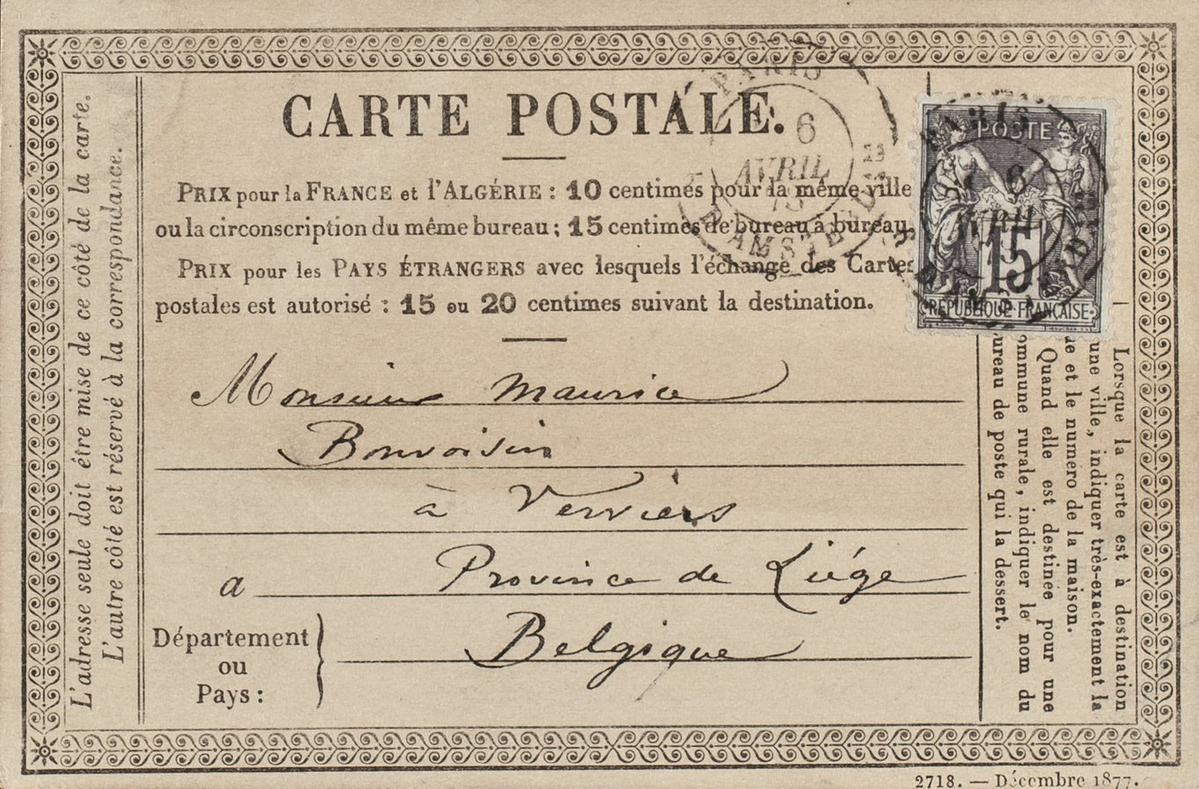 CARTE POSTALE.
PRIX pour la FRANCE et l'ALGÉRIE : 10 centimes pour la même ville
ou la circonscription du même bureau ; 15 centimes de bureau à bureau.
PRIX pour les PAYS ÉTRANGERS avec lesquels l'échange des Cartes
postales est autorisé : 15 ou 20 centimes suivant la destination.
Monsieur Maurice
Bonvoisin
à Verviers
a Province de Liége
Département
ou
Pays :
Belgique
L'adresse seule doit être mise de ce côté de la carte.
L'autre côté est réservé à la correspondance.
PARIS
6
AVRIL
78
R. D'AMSTERDAM
POSTE
15
RÉPUBLIQUE FRANÇAISE
PARIS
6
AVRIL
Lorsque la carte est à destination
une ville, indiquer très-exactement la
et le numéro de la maison.
Quand elle est destinée pour une
commune rurale, indiquer le nom du
bureau de poste qui la dessert.
2718. — Décembre 1877.